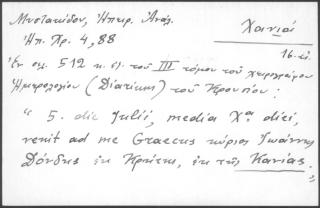 Μυστακίδου, Ἠπειρ. Ἀνάλ. Χανιά
Ἠπ. Χρ. 4, 88 16-αι.
Ἐν σελ. 512 κ. ἑξ. τοῦ III τόμου τοῦ χειρογράφου
Ἡμερολογίου (Diarium) τοῦ Κρουσίου:
"5. die Julii, media Xᵃ diei,
venit ad me Graecus κύριος Ἰωάννης
Δόνδης ἐκ Κρήτης, ἐκ τῆς Κανίας.